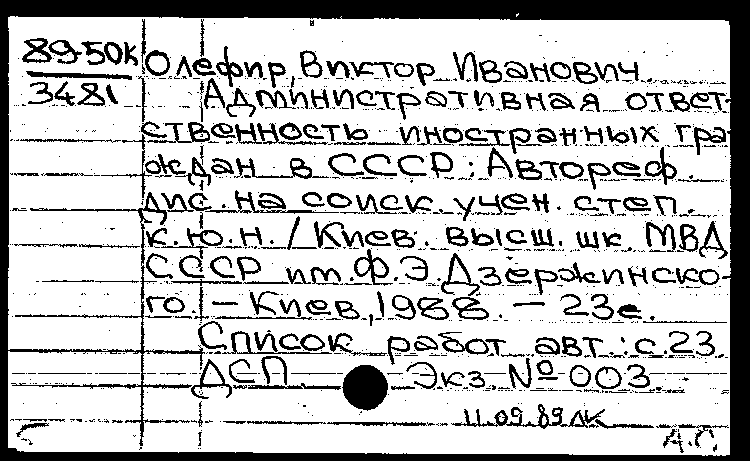 89-50К
3481
Олефир, Виктор Иванович.
Административная ответ-
ственность иностранных гра-
ждан в СССР: Автореф.
дис. на соиск. учен. степ.
к.ю.н. / Киев. высш. шк. МВД
СССР им. Ф.Э. Дзержинско-
го. – Киев, 1988. – 23с.
Список работ авт.: с.23.
ДСП. Экз. № 003.
11.09.89 ЛК
А.С.